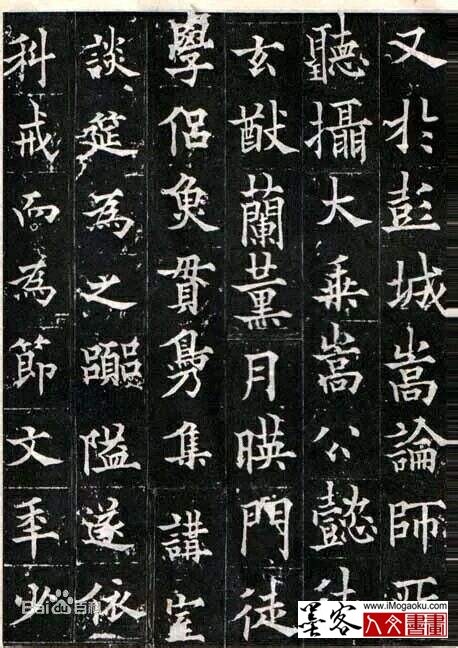 又於彭城嵩論師
聽攝大乘嵩公懿
玄猷蘭薰月暎門徒
學侶魚貫鳧集講室
談筵為之囂隘遂依
科戒而為節文年少
Bai百科
墨客
www.iMogaoku.com
人文書畫